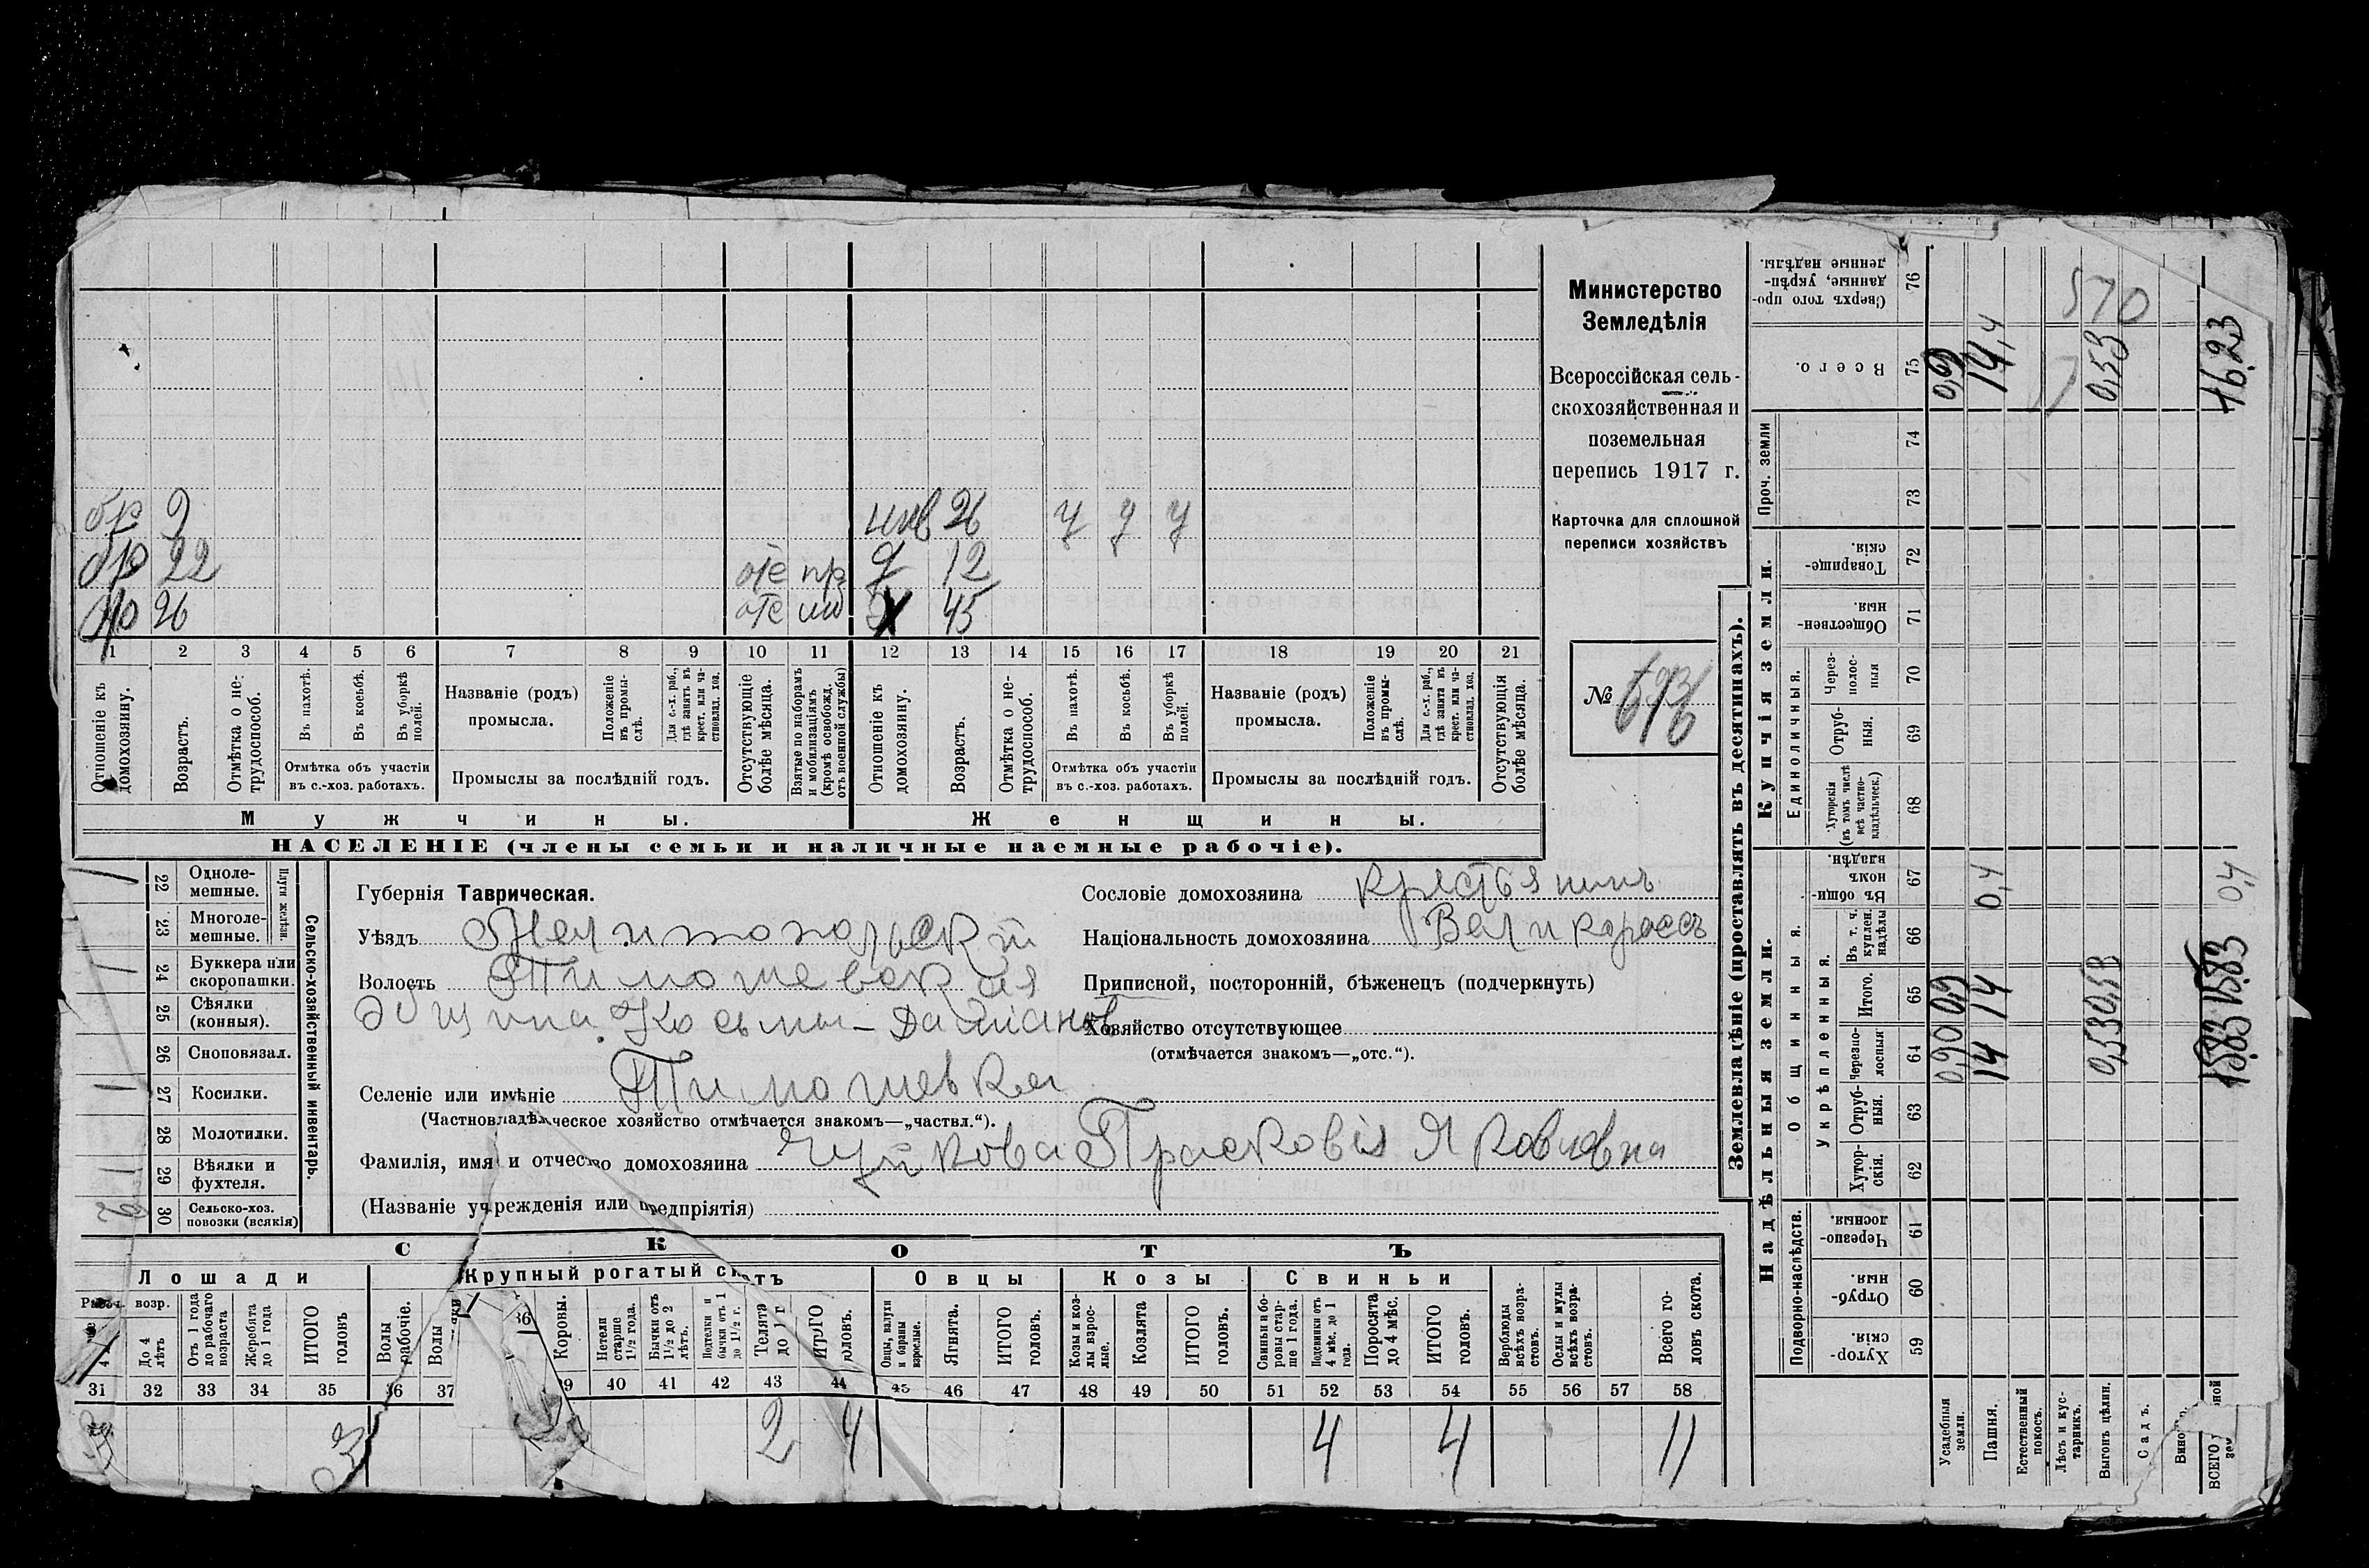 бр 9 нев 26 у у у
бр 22 отс пр д 12
бр 26 отс 45
1 2 3 4 5 6 7 8 9 10 11 12 13 14 15 16 17 18 19 20 21
Отношеніе къ домохозяину.
Возрастъ.
Отмѣтка о нетрудоспособ.
Въ пахотѣ.
Въ косьбѣ.
Въ уборкѣ полей.
Отмѣтка объ участіи
въ с.-хоз. работахъ.
Названіе (родъ)
промысла.
Положеніе въ промыслѣ.
Для с.-х. раб., гдѣ занятъ въ крест. или частновлад. хоз.
Промыслы за послѣдній годъ.
Отсутствующіе болѣе мѣсяца.
Взятые по наборамъ и мобилизаціямъ (кромѣ освобожд. отъ военной службы)
Отношеніе къ домохозяину.
Возрастъ.
Отмѣтка о нетрудоспособ.
Въ пахотѣ.
Въ косьбѣ.
Въ уборкѣ полей.
Отмѣтка объ участіи
въ с.-хоз. работахъ.
Названіе (родъ)
промысла.
Положеніе въ промыслѣ.
Для с.-х. раб., гдѣ занята въ крест. или частновлад. хоз.
Промыслы за послѣдній годъ.
Отсутствующія болѣе мѣсяца.
Мужчины. Женщины.
НАСЕЛЕНІЕ (члены семьи и наличные наемные рабочіе).
Министерство
Земледѣлія
Всероссійская сель-
скохозяйственная и
поземельная
перепись 1917 г.
Карточка для сплошной
переписи хозяйствъ
№ 693
22 Одноле-
мешные.
23 Многоле-
мешные.
Плуги желѣзн.
24 Буккера или
скоропашки.
25 Сѣялки
(конныя).
26 Сноповязал.
27 Косилки.
28 Молотилки.
29 Вѣялки и
фухтеля.
30 Сельско-хоз.
повозки (всякія)
Сельско-хозяйственный инвентарь.
Губернія Таврическая.
Уѣздъ Мелитопольскій
Волость Тимошевская
Община Косьмы-Даміанов
Селеніе или имѣніе Тимошевка
(Частновладѣльческое хозяйство отмѣчается знакомъ—„частвл.“).
Фамилія, имя и отчество домохозяина Чуйкова Прасковія Яковлевна
(Названіе учрежденія или предпріятія)
Сословіе домохозяина крестьянинъ
Національность домохозяина Великороссъ
Приписной, посторонній, бѣженецъ (подчеркнуть)
Хозяйство отсутствующее
(отмѣчается знакомъ—„отс.“).
СКОТЪ
Лошади Крупный рогатый скотъ Овцы Козы Свиньи
До 4 лѣтъ
Отъ 1 года до рабочаго возраста
Жеребята до 1 года
ИТОГО головъ
Волы рабочіе.
Волы
Коровы.
Нетели старше 1½ года.
Бычки отъ 1½ до 2 лѣтъ.
Подтелки и бычки отъ 1 до 1½ г.
Телята до 1 г
ИТОГО головъ.
Овцы, валухи и бараны взрослые.
Ягнята.
ИТОГО головъ.
Козы и козлы взрослые.
Козлята
ИТОГО головъ.
Свиньи и боровы старше 1 года.
Подсвинки отъ 4 мѣс. до 1 года.
Поросята до 4 мѣс.
ИТОГО головъ.
Верблюды всѣхъ возрастовъ.
Ослы и мулы всѣхъ возрастовъ.
Всего головъ скота.
31 32 33 34 35 36 37 39 40 41 42 43 44 45 46 47 48 49 50 51 52 53 54 55 56 57 58
3 2 4 4 4 11
Землевладѣніе (проставлять въ десятинахъ).
Купчія земли.
Надѣльныя земли.
Сверхъ того проданные, укрѣпленные надѣлы. 76
Всего. 75
Проч. земли 74 73
Товарищескія. 72
Общественныя. 71
Единоличныя.
Черезполосныя 70
Отрубныя. 69
Хуторскія (въ томъ числѣ всѣ частновладѣльческ.) 68
Общинныя.
Въ общинномъ владѣн. 67
Укрѣпленныя.
Въ т. ч. куплен. надѣлы 66
Итого. 65
Черезполосныя 64
Отрубныя. 63
Хуторскія. 62
Подворно-наслѣдств.
Черезполосныя. 61
Отрубныя. 60
Хуторскія. 59
Усадебныя земли. 0,90 0,9 0,9
Пашня. 14 14 0,4 14,4
Естественный покосъ.
Лѣсъ и кустарникъ.
Выгонъ цѣлин. 0,53 0,53 0,53
Садъ.
ВСЕГО 15,83 15,83 0,4 16,23
570